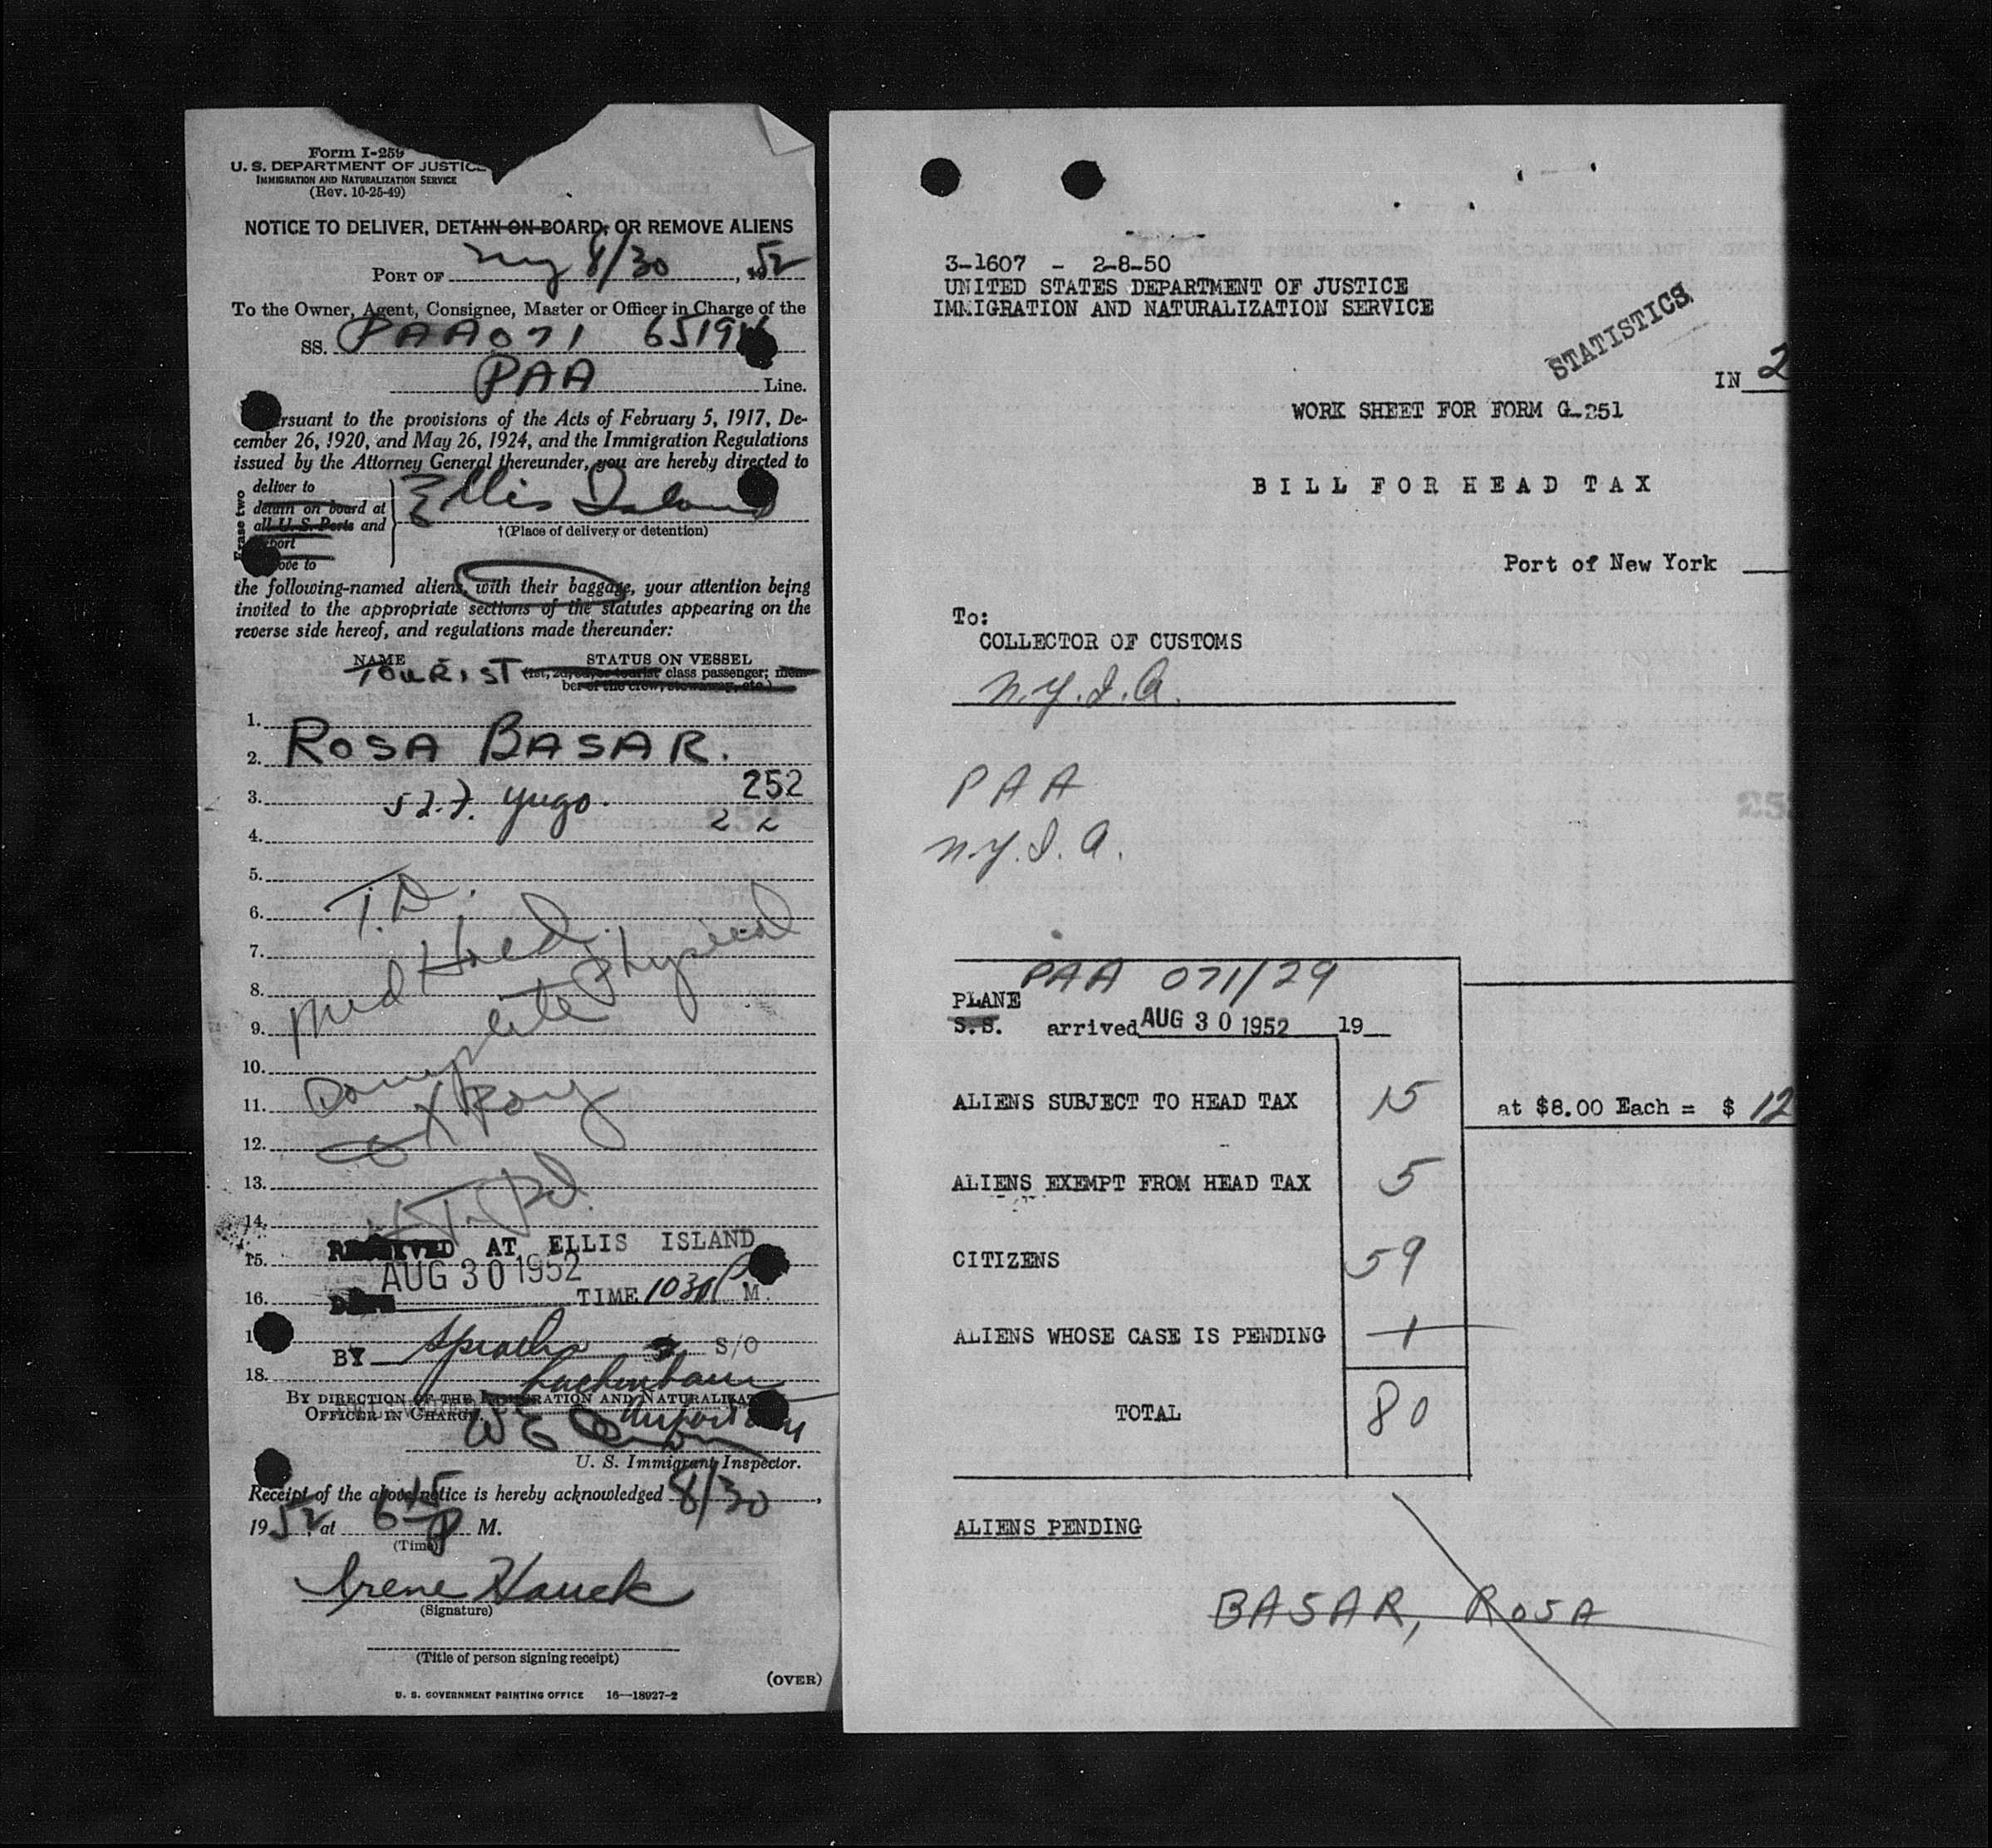 Form I-259
U. S. DEPARTMENT OF JUSTICE
IMMIGRATION AND NATURALIZATION SERVICE
(Rev. 10-25-49)
NOTICE TO DELIVER, DETAIN ON BOARD, OR REMOVE ALIENS
PORT OF NY 8/30, 1952
To the Owner, Agent, Consignee, Master or Officer in Charge of the
SS. PAA 071 6519
PAA Line.
rsuant to the provisions of the Acts of February 5, 1917, De-
cember 26, 1920, and May 26, 1924, and the Immigration Regulations
issued by the Attorney General thereunder, you are hereby directed to
Erase two
deliver to
detain on board at
all U. S. Ports and
port
ove to
Ellis Island
†(Place of delivery or detention)
the following-named aliens, with their baggage, your attention being
invited to the appropriate sections of the statutes appearing on the
reverse side hereof, and regulations made thereunder:
NAME STATUS ON VESSEL
TOURIST (1st, 2d, 3d, or tourist class passenger; mem-
ber of the crew, stowaway, etc.)
1.
2. ROSA BASAR.
3. 52 F. Yugo. 252
4. 2 2
5.
6. T.D.
7. Med Hold
8. Physical
9. Complete
10.
11. X Ray
12.
13.
14.
RECEIVED AT ELLIS ISLAND
15.
AUG 30 1952
16. DATE TIME 1030 P M.
1
BY S/O
18.
BY DIRECTION OF THE IMMIGRATION AND NATURALIZAT
OFFICER IN CHARGE.
U. S. Immigrant Inspector.
Receipt of the above notice is hereby acknowledged 8/30,
1952, at 6 15 P M.
(Time)
Irene Hauck
(Signature)
(Title of person signing receipt)
(OVER)
U. S. GOVERNMENT PRINTING OFFICE 16—18927-2
3-1607 - 2-8-50
UNITED STATES DEPARTMENT OF JUSTICE
IMMIGRATION AND NATURALIZATION SERVICE
STATISTICS
IN 2
WORK SHEET FOR FORM G-251
BILL FOR HEAD TAX
Port of New York
To:
COLLECTOR OF CUSTOMS
N.Y.I.A.
PAA
N.Y.I.A.
PAA 071/29
PLANE
S.S. arrived AUG 30 1952 19
ALIENS SUBJECT TO HEAD TAX 15 at $8.00 Each = $ 12
ALIENS EXEMPT FROM HEAD TAX 5
CITIZENS 59
ALIENS WHOSE CASE IS PENDING 1
TOTAL 80
ALIENS PENDING
BASAR, ROSA